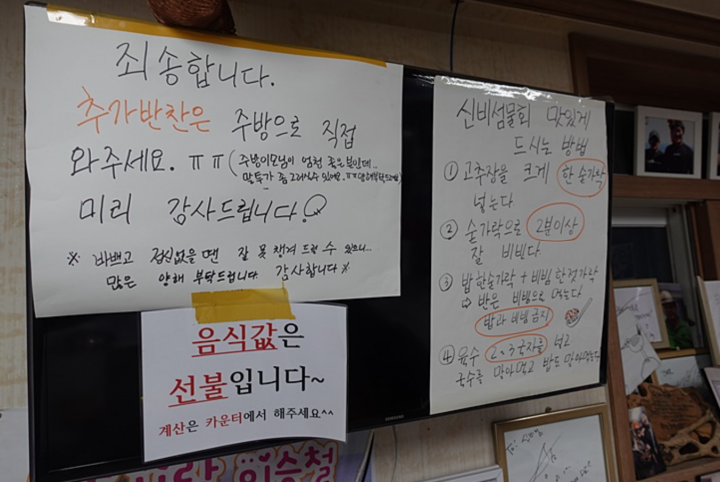 죄송합니다.
추가반찬은 주방으로 직접
와주세요. ㅠㅠ (주방이모님이 엄청 좋은분인데..
말투가 좀 그러실수 있어요. ㅠㅠ
미리 감사드립니다!
※ 바쁘고 정신없을땐 잘 못 챙겨 드릴 수 있으니..
많은 양해 부탁드립니다 감사합니다 ※
음식값은
선불입니다~
계산은 카운터에서 해주세요^^
신비섬물회 맛있게
드시는 방법
① 고추장을 크게 한 숟가락
넣는다
② 숟가락으로 2분이상
잘 비빈다
③ 밥 한숟가락 + 비빔 한젓가락
⇨ 반은 비빔으로 먹는다
밥과 비빔 금지
④ 육수 2~3국자를 넣고
국수를 말아먹고 밥도 말아먹는다
SAMSUNG
이승철